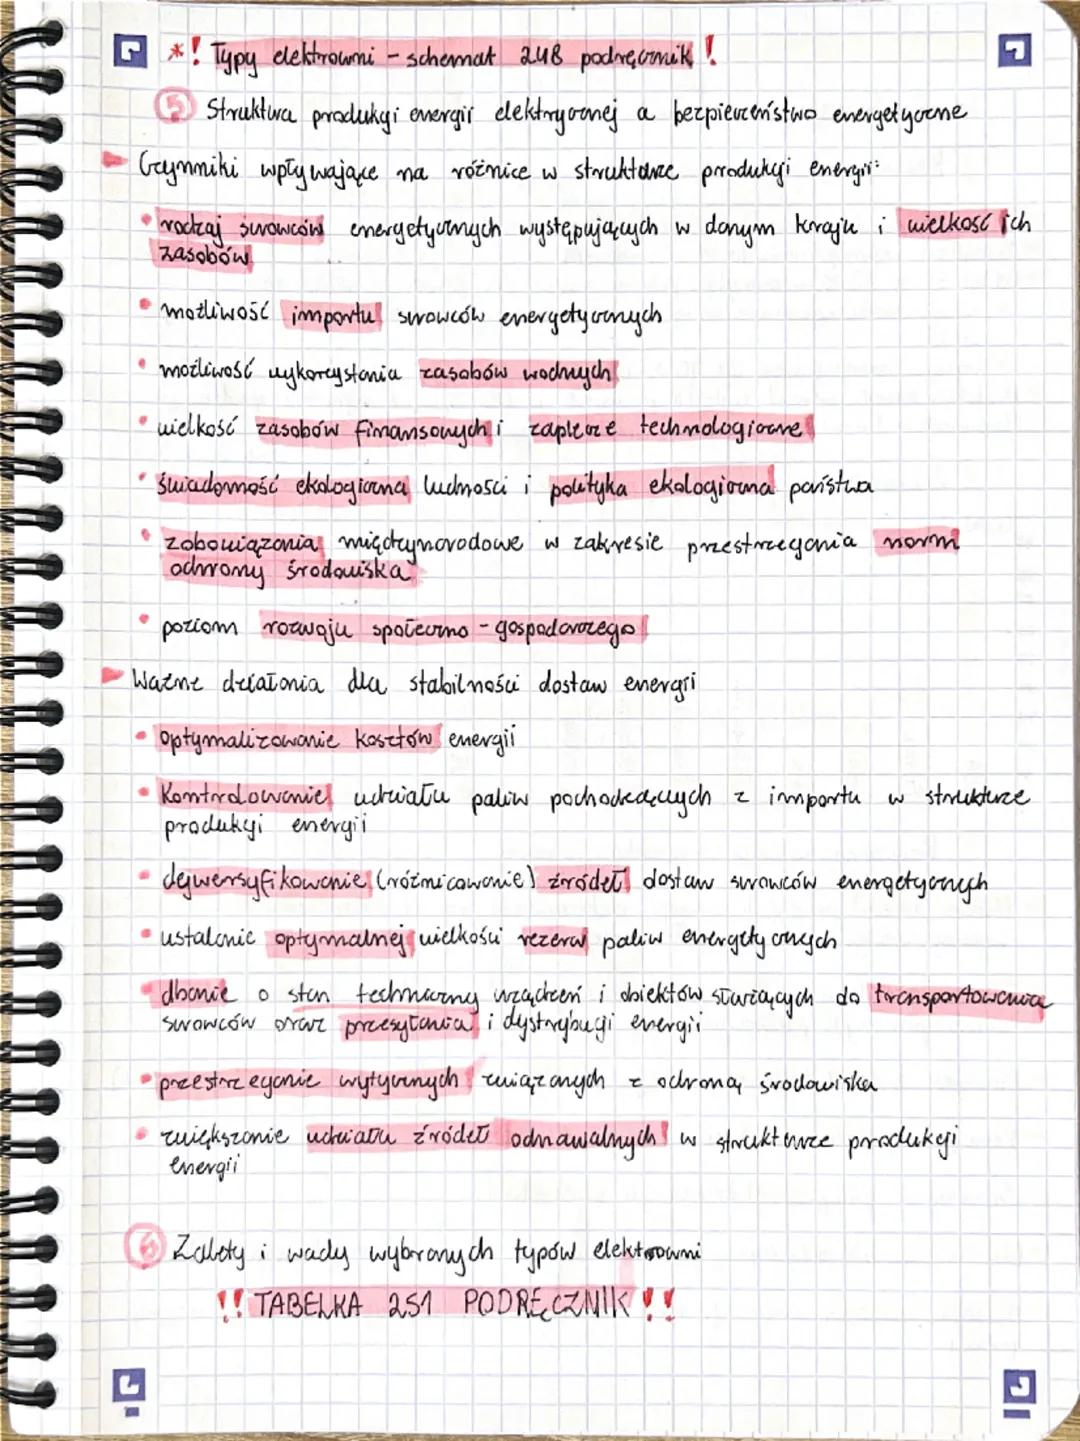 *! Typy elektrowni - schemat 248 podręcznik !
5 Struktura produkcji energii elektrycznej a bezpieczeństwo energetyczne
Czynniki wpływające na różnice w strukturze produkcji energii:
• rodzaj surowców energetycznych występujących w danym kraju i wielkość ich
zasobów
• możliwość importu surowców energetycznych
• możliwość wykorzystania zasobów wodnych
• wielkość zasobów finansowych i zaplecze technologiczne
• świadomość ekologiczna ludności i polityka ekologiczna państwa
• zobowiązania międzynarodowe w zakresie przestrzegania norm
ochrony środowiska
• poziom rozwoju społeczno - gospodarczego
Ważne działania dla stabilności dostaw energii
• Optymalizowanie kosztów energii
• Kontrolowanie udziału paliw pochodzących z importu w strukturze
produkcji energii
• dejwersyfikowanie (różnicowanie) źródeł dostaw surowców energetycznych
• ustalenie optymalnej wielkości rezerw paliw energetycznych
• dbanie o stan techniczny urządzeń i obiektów służących do transportowania
surowców oraz przesyłania i dystrybucji energii
• przestrzeganie wytycznych związanych z ochroną środowiska
• zwiększanie udziału źródeł odnawialnych w strukturze produkcji
energii
6 Zalety i wady wybranych typów elektrowni
!! TABELKA 251 PODRĘCZNIK !!